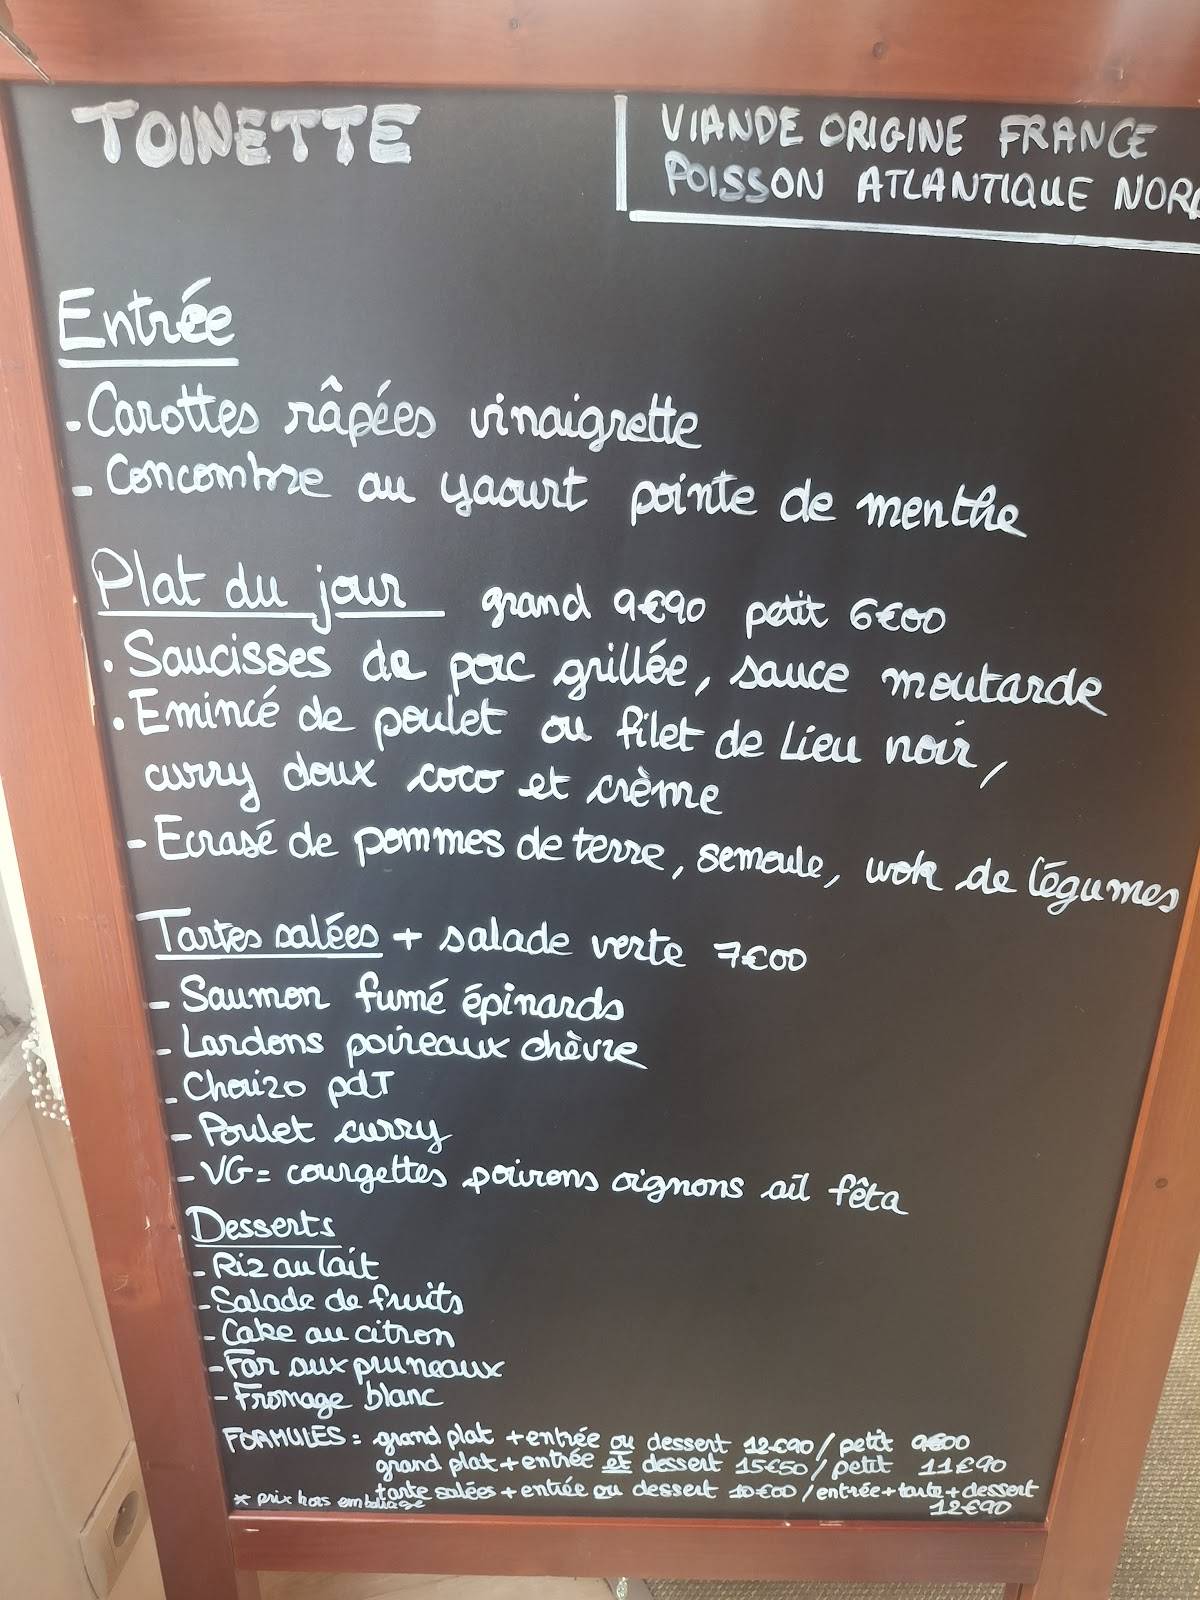 TOINETTE
VIANDE ORIGINE FRANCE
POISSON ATLANTIQUE NORD
Entrée
- Carottes râpées vinaigrette
- Concombre au yaourt pointe de menthe
Plat du jour grand 9€90 petit 6€00
• Saucisses de porc grillée, sauce moutarde
• Emincé de poulet ou filet de Lieu noir,
curry doux coco et crème
- Ecrasé de pommes de terre, semoule, wok de légumes
Tartes salées + salade verte 7€00
- Saumon fumé épinards
- Lardons poireaux chèvre
- Chorizo pdT
- Poulet curry
- VG = courgettes poivrons oignons ail fêta
Desserts
- Riz au lait
- Salade de fruits
- Cake au citron
- Far aux pruneaux
- Fromage blanc
FORMULES : grand plat + entrée ou dessert 12€90 / petit 9€00
grand plat + entrée et dessert 15€50 / petit 11€90
tarte salées + entrée ou dessert 10€00 / entrée + tarte + dessert
12€90
* prix hors emballage